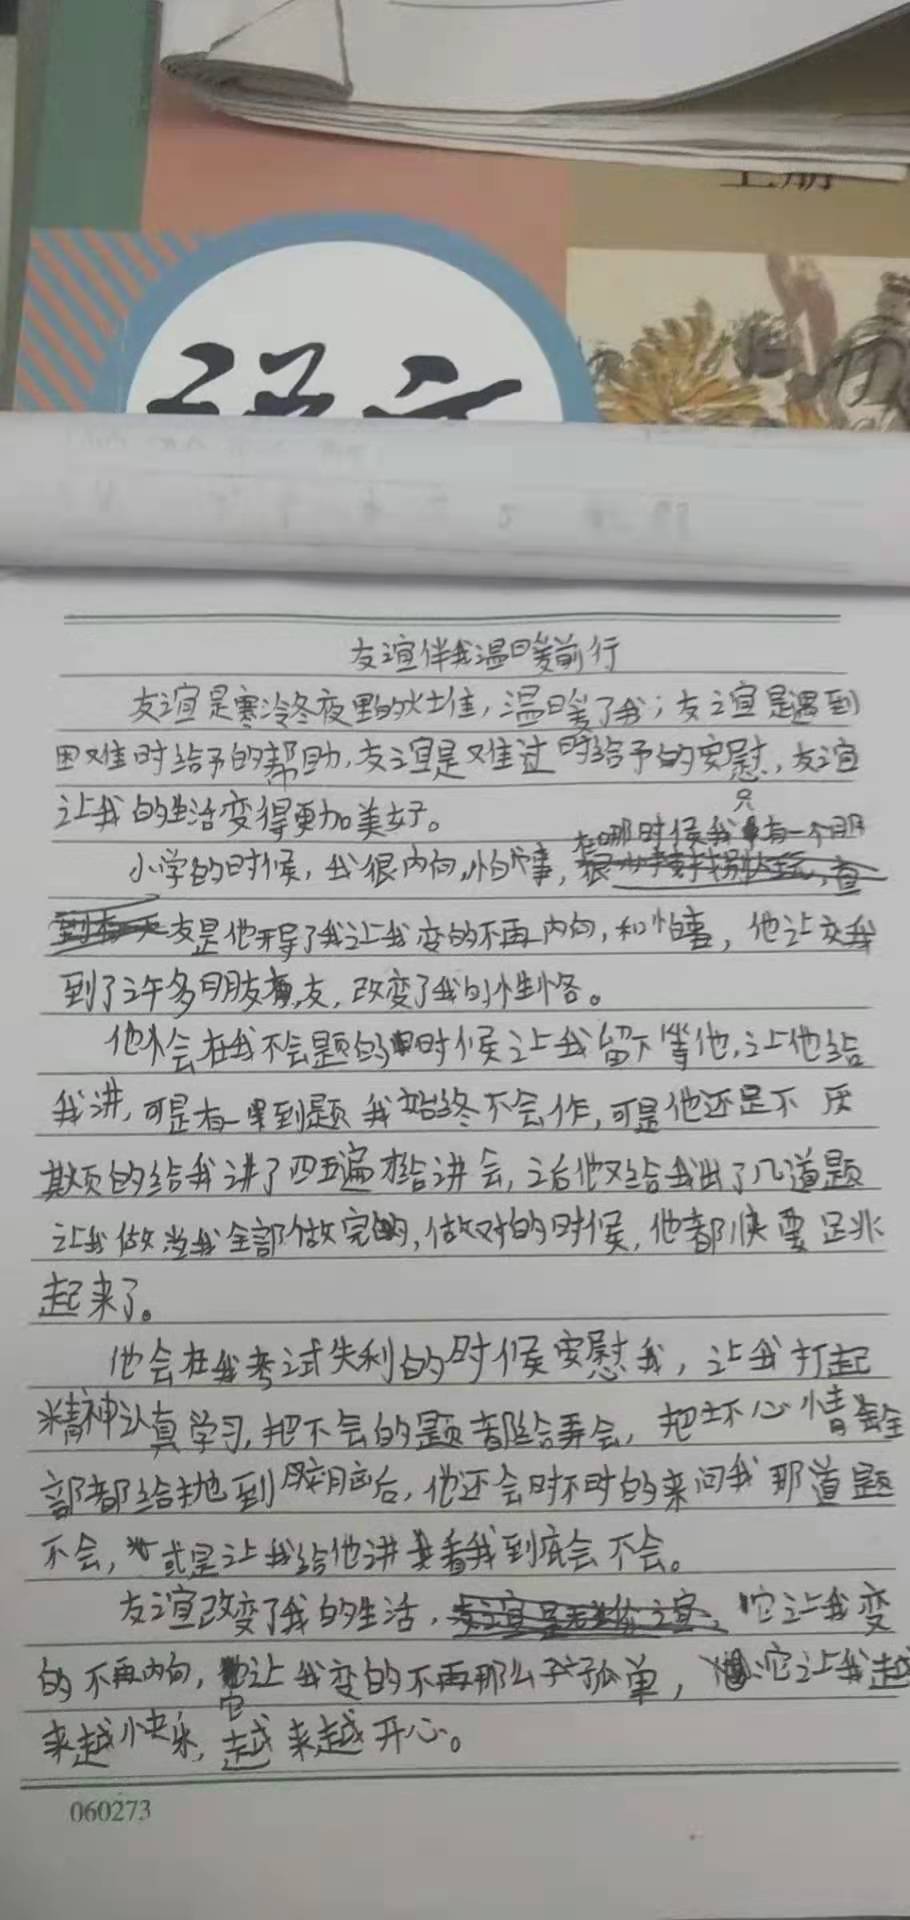 上册
语文
友谊伴我温暖前行
友谊是寒冷冬夜里的火堆，温暖了我；友谊是遇到
困难时给予的帮助，友谊是难过时给予的安慰，友谊
让我的生活变得更加美好。
小学的时候，我很内向，怕事，在哪时候我只有一个朋
友是他开导了我让我变的不再内向，和怕事，他让交我
到了许多朋友，友，改变了我的性格。
他会在我不会题的时候让我留下等他，让他给
我讲，可是有一里到题我始终不会作，可是他还是不厌
其烦的给我讲了四五遍才给讲会，之后他又给我出了几道题
让我做当我全部做完的，做对的时候，他都快要跳
起来了。
他会在我考试失利的时候安慰我，让我打起
精神认真学习，把不会的题都给弄会，把坏心情全
部都给抛到脑后，他还会时不时的来问我那道题
不会，或是让我给他讲看我到底会不会。
友谊改变了我的生活，它让我变
的不再内向，它让我变的不再那么孤单，它让我越
来越快乐，越来越开心。
060273